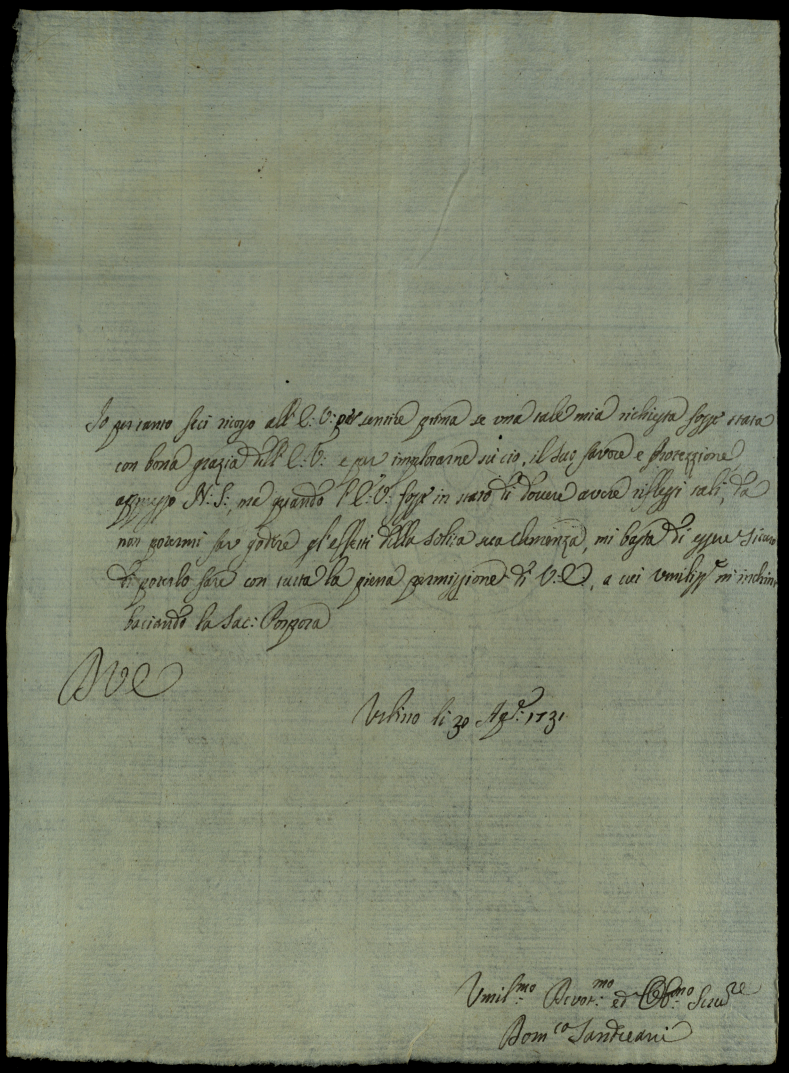 Io per tanto feci ricorso all' E: V: per sentire prima se una tale mia richiesta fosse stata
con bona grazia dell' E: V: e per implorarne su ciò, il suo favore e Protezzione
appresso N: S: ma quando l' E: V: fosse in stato di dovere avere riflessi tali, da
non potermi far godere gl'effetti della solita sua Clemenza, mi basta di essere sicuro
di poterlo fare con tutta la piena permissione di V: E, a cui umiliss.e m'inchino
baciando la Sac: Porpora
D V E
Urbino li 30 Ag.o: 1731
Umil.mo: Devot.mo: ed Obb.mo: Serv.re
Dom.co Santreani